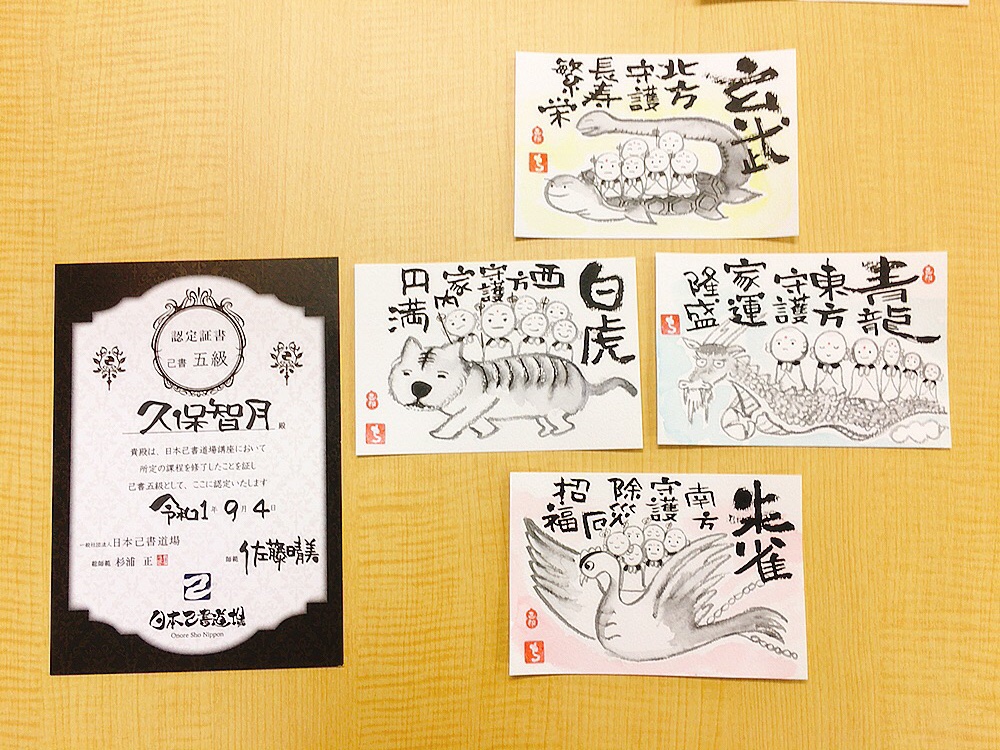 認定証書
己書 五級
久保智月 殿
貴殿は、日本己書道場講座において
所定の課程を修了したことを証し
己書五級として、ここに認定いたします
令和1年 9月 4日
一般社団法人日本己書道場
総師範 杉浦 正
師範 佐藤晴美
日本己書道場
Onore Sho Nippon
玄武
北方
守護
長寿
繁栄
白虎
西方
守護
家内
円満
青龍
東方
守護
家運
隆盛
朱雀
南方
守護
除災厄
招福